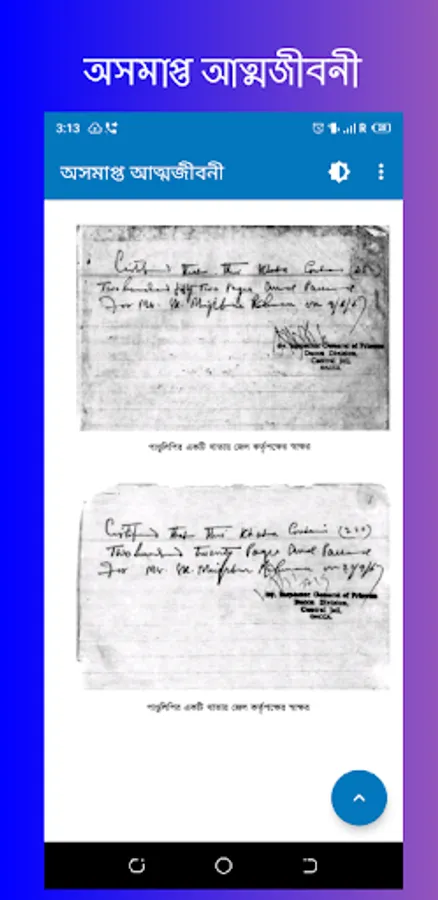 অসমাপ্ত আত্মজীবনী
3:13
R
অসমাপ্ত আত্মজীবনী
Certified that this Khata Contains
Two hundred fifty two Pages and Passed
for Mr. Sk. Mujibur Rahman on 9/6/67
Dy. Inspector General of Prisons
Dacca Division,
Central Jail,
DACCA.
পাণ্ডুলিপির একটি খাতায় জেল কর্তৃপক্ষের স্বাক্ষর
Certified that this Khata Contains (220)
Two hundred twenty Pages and Passed
for Mr. Sk. Mujibur Rahman on
Dy. Inspector General of Prisons
Dacca Division,
Central Jail,
DACCA.
পাণ্ডুলিপির একটি খাতায় জেল কর্তৃপক্ষের স্বাক্ষর